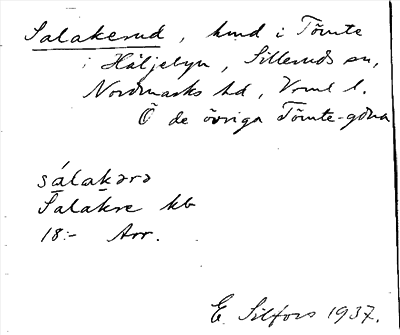 Salakerud, hmd i Tõmte
i Häljebyn, Silleruds sn,
Nordmarks hd, Vrml l.
Ö de övriga Tõmte-gdna
sálakərə
Salakre kb
18:- Arr.
E. Silfors 1937.